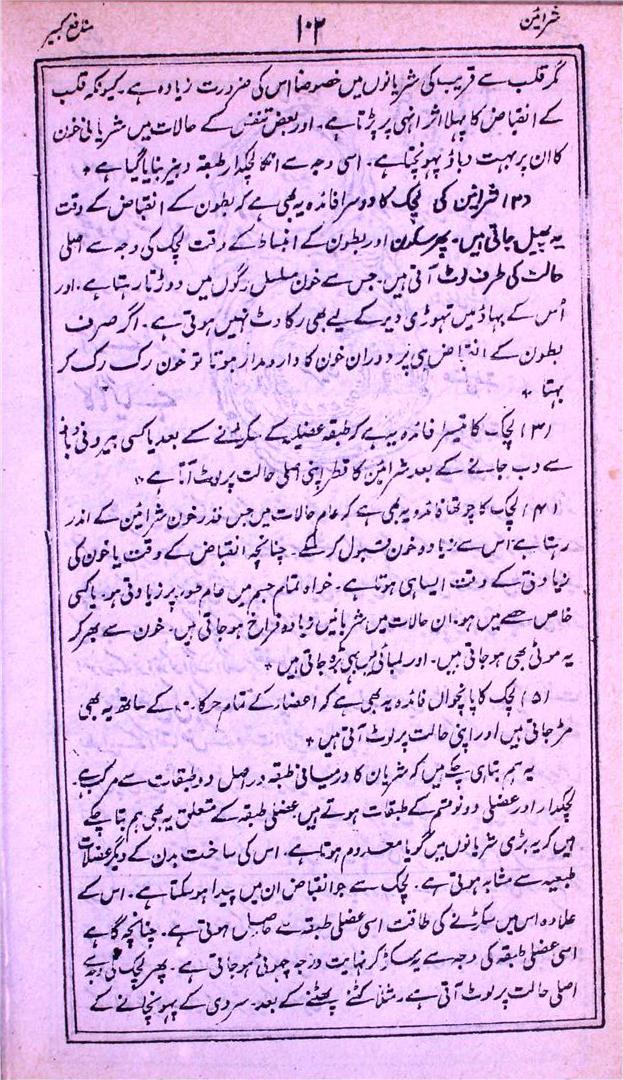 شرائین
۱۰۲
منافع کبیر
مگر قلب سے قریب کی شریانوں میں خصوصاً اس کی ضرورت زیادہ ہے۔ کیونکہ قلب
کے انقباض کا پہلا اثر انہی پر پڑتا ہے۔ اور بعض تنفس کے حالات میں شریانی خون
کا ان پر بہت دباؤ پہونچتا ہے۔ اسی وجہ سے انکا لچکدار طبقہ دبیز بنایا گیا ہے ٭
(۲) شرائین کی لچک کا دوسرا فائدہ یہ بھی ہے کہ بطون کے انقباض کے وقت
یہ پھیل جاتی ہیں۔ پھر سکون اور بطون کے انبساط کے وقت لچک کی وجہ سے اصلی
حالت کی طرف لوٹ آتی ہیں۔ جس سے خون مسلسل رگوں میں دوڑتا رہتا ہے۔ اور
اُس کے بہاؤ میں تھوڑی دیر کے لیے بھی رکاوٹ نہیں ہوتی ہے۔ اگر صرف
بطون کے انقباض ہی پر دوران خون کا دارومدار ہوتا تو خون رک رک کر
بہتا ٭
(۳) لچک کا تیسرا فائدہ یہ ہے کہ طبقہ عضلیہ کے سکڑنے کے بعد یا کسی بیرونی دباؤ
سے دب جانے کے بعد شرائین کا قطر اپنی اصلی حالت پر لوٹ آتا ہے ٭
(۴) لچک کا چوتھا فائدہ یہ بھی ہے کہ عام حالات میں جس قدر خون شرائین کے اندر
رہتا ہے اس سے زیادہ خون قبول کر سکے۔ چنانچہ انقباض کے وقت یا خون کی
زیادتی کے وقت ایسا ہی ہوتا ہے۔ خواہ تمام جسم میں عام طور پر زیادتی ہو۔ یا کسی
خاص حصے میں ہو۔ ان حالات میں شریانیں زیادہ فراخ ہو جاتی ہیں۔ خون سے بھر کر
یہ موٹی بھی ہو جاتی ہیں۔ اور لمبائی میں بھی بڑھ جاتی ہیں ٭
(۵) لچک کا پانچواں فائدہ یہ بھی ہے کہ اعضاء کے تمام حرکات کے ساتھ یہ بھی
مڑ جاتی ہیں اور اپنی حالت پر لوٹ آتی ہیں ٭
یہ ہم بتا ہی چکے ہیں کہ شریان کا درمیانی طبقہ دراصل دو طبقات سے مرکب ہے
لچکدار اور عضلی دونوں قسم کے طبقات ہوتے ہیں عضلی طبقہ کے متعلق یہ بھی ہم بتا چکے
ہیں کہ یہ بڑی شریانوں میں گویا معدوم ہوتا ہے۔ اس کی ساخت بدن کے دیگر عضلات
طبعیہ سے مشابہ ہوتی ہے۔ لچک سے جو انقباض ان میں پیدا ہو سکتا ہے۔ اس کے
علاوہ اس میں سکڑنے کی طاقت اسی عضلی طبقہ سے حاصل ہوتی ہے۔ چنانچہ گاہے
اسی عضلی طبقہ کی وجہ سے یہ سکڑ کر نہایت درجہ چھوٹی ہو جاتی ہے۔ پھر لچک کی وجہ سے
اصلی حالت پر لوٹ آتی ہے۔ مثلاً کٹنے پھٹنے کے بعد۔ سردی کے پہونچانے کے